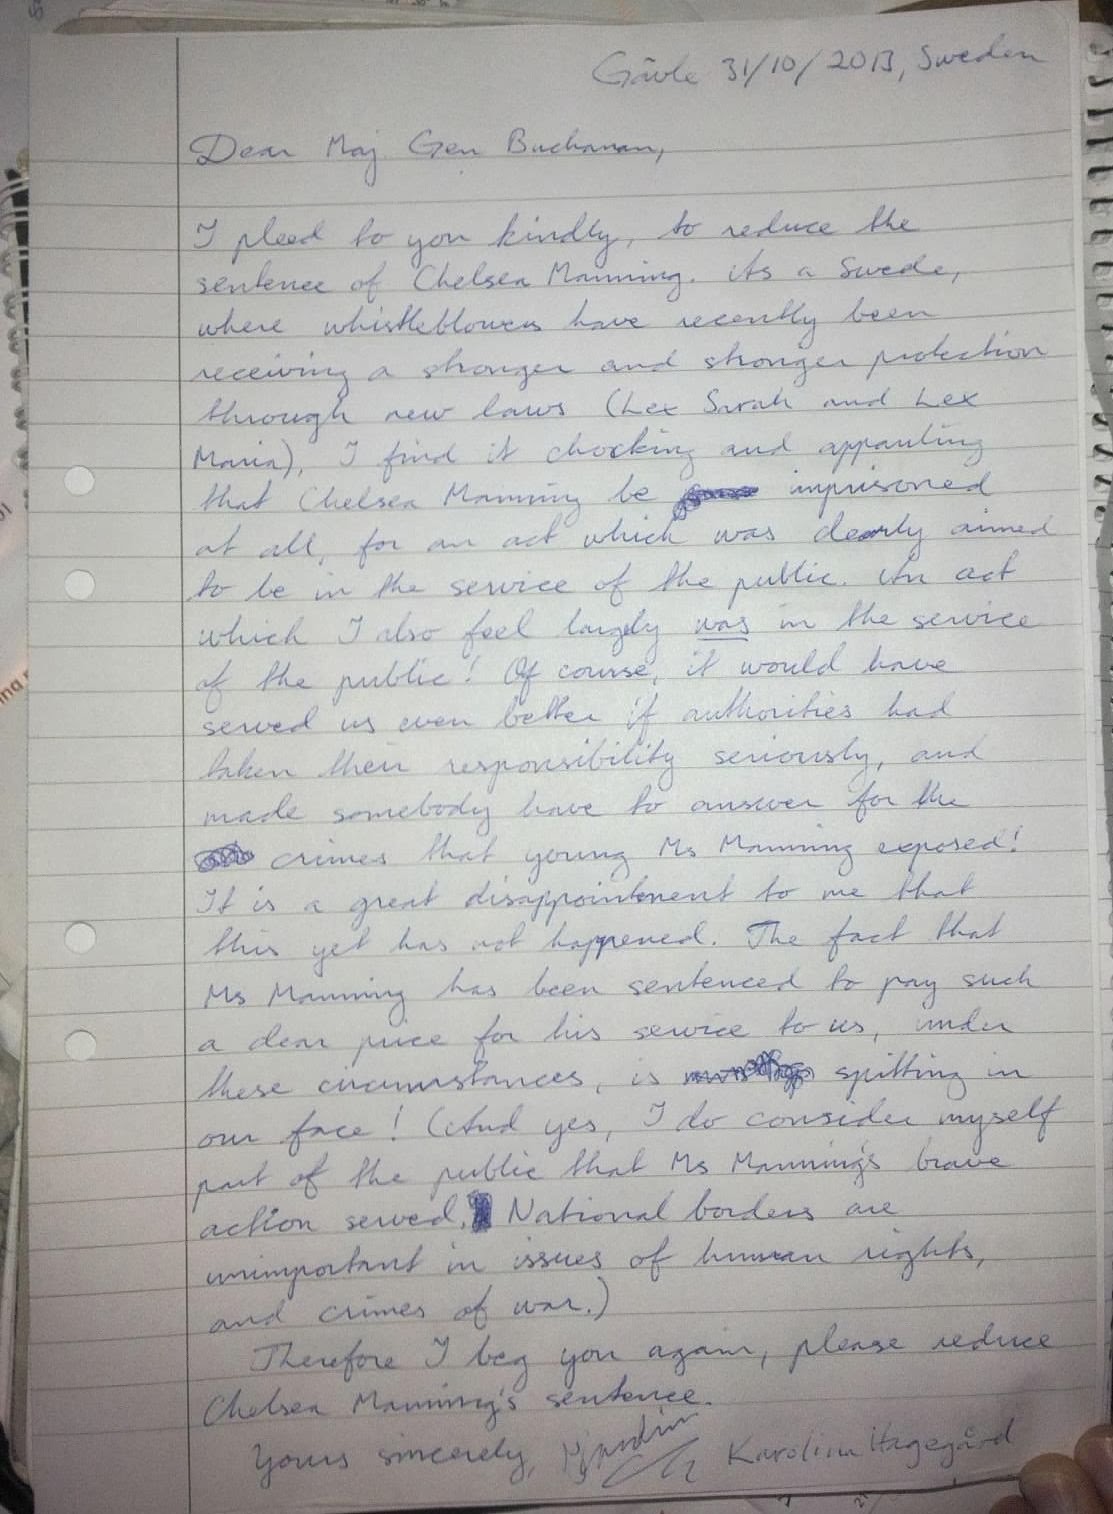 Gävle 31/10/2013, Sweden
Dear Maj Gen Buchanan,
I pleed to you kindly, to reduce the
sentence of Chelsea Manning. As a Swede,
where whistleblowers have recently been
receiving a stronger and stronger protection
through new laws (Lex Sarah and Lex
Maria), I find it chocking and appauling
that Chelsea Manning be imprisoned
at all, for an act which was clearly aimed
to be in the service of the public. An act
which I also feel largely was in the service
of the public! Of course, it would have
served us even better if authorities had
taken their responsibility seriously, and
made somebody have to answer for the
crimes that young Ms Manning exposed!
It is a great disappointment to me that
this yet has not happened. The fact that
Ms Manning has been sentenced to pay such
a dear price for his service to us, under
these circumstances, is spitting in
our face! (And yes, I do consider myself
part of the public that Ms Manning's brave
action served. National borders are
unimportant in issues of human rights,
and crimes of war.)
Therefore I beg you again, please reduce
Chelsea Manning's sentence.
Yours sincerely, Karolina Hagegård